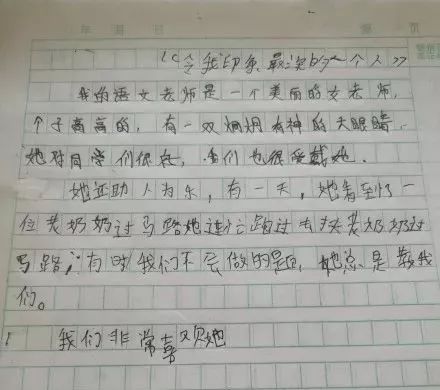 年 月 日 第 页
《令我印象最深的一个人》
我的语文老师是一个美丽的女老师,
个子高高的,有一双炯炯有神的大眼睛.
她对同学们很好,我们也很爱戴她.
她还助人为乐,有一天,她看到了一
位老奶奶过马路她连忙跑过去扶老奶奶过
马路,有时我们不会做的题,她总是教我
们。
我们非常喜欢她